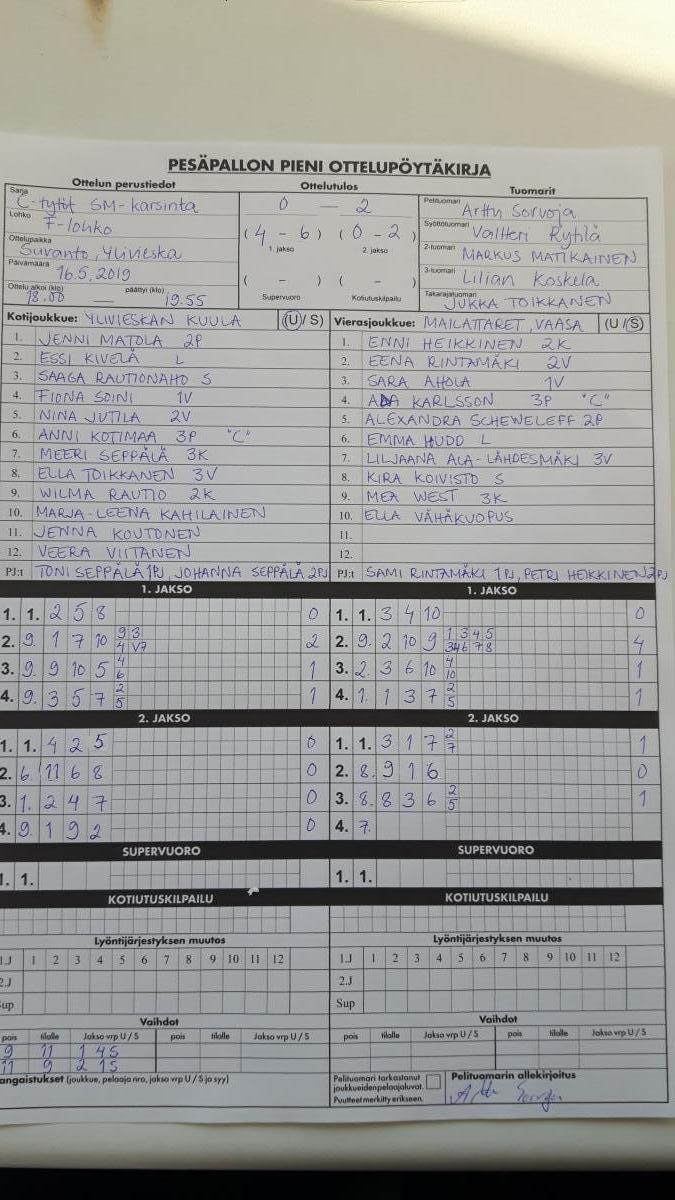 PESÄPALLON PIENI OTTELUPÖYTÄKIRJA
Ottelun perustiedot Ottelutulos Tuomarit
Sarja C-tytöt SM-karsinta
Lohko F-lohko
Ottelupaikka Suvanto, Ylivieska
Päivämäärä 16.5.2019
Ottelu alkoi (klo) 18.00 — päättyi (klo) 19.55
0 — 2
( 4 - 6 ) ( 0 - 2 )
1. jakso 2. jakso
( - ) ( - )
Supervuoro Kotiutuskilpailu
Pelituomari Arttu Sorvoja
Syöttötuomari Valtteri Rytilä
2-tuomari MARKUS MATIKAINEN
3-tuomari Lilian Koskela
Takarajatuomari JUKKA TOIKKANEN
Kotijoukkue: YLIVIESKAN KUULA (U/S)
1. JENNI MATOLA 2P
2. ESSI KIVELÄ L
3. SAAGA RAUTIONAHO S
4. FIONA SOINI 1V
5. NINA JUTILA 2V
6. ANNI KOTIMAA 3P "C"
7. MEERI SEPPÄLÄ 3K
8. ELLA TOIKKANEN 3V
9. WILMA RAUTIO 2K
10. MARJA-LEENA KAHILAINEN
11. JENNA KOUTONEN
12. VEERA VIITANEN
PJ:t TONI SEPPÄLÄ 1PJ, JOHANNA SEPPÄLÄ 2PJ
Vierasjoukkue: MAILATTARET, VAASA (U/S)
1. ENNI HEIKKINEN 2K
2. EENA RINTAMÄKI 2V
3. SARA AHOLA 1V
4. ADA KARLSSON 3P "C"
5. ALEXANDRA SCHEWELEFF 2P
6. EMMA HUDD L
7. LILJAANA ALA-LÄHDESMÄKI 3V
8. KIRA KOIVISTO S
9. MEA WEST 3K
10. ELLA VÄHÄKUOPUS
11.
12.
PJ:t SAMI RINTAMÄKI 1PJ, PETRI HEIKKINEN 2PJ
1. JAKSO
1. 1. 2 5 8 0
2. 9. 1 7 10 9 3 2
4 V7
3. 9. 9 10 5 4 1
6
4. 9. 3 5 7 2 1
5
2. JAKSO
1. 1. 4 2 5 0
2. 6. 11 6 8 0
3. 1. 2 4 7 0
4. 9. 1 9 2 0
SUPERVUORO
1. 1.
KOTIUTUSKILPAILU
1. JAKSO
1. 1. 3 4 10 0
2. 9. 2 10 9 1 3 4 5 4
3 4 6 7 8
3. 2. 3 6 10 4 1
10
4. 1. 1 3 7 2 1
5
2. JAKSO
1. 1. 3 1 7 2 1
7
2. 8. 9 1 6 0
3. 8. 8 3 6 2 1
5
4. 7.
SUPERVUORO
1. 1.
KOTIUTUSKILPAILU
Lyöntijärjestyksen muutos
1.J 1 2 3 4 5 6 7 8 9 10 11 12
2.J
Sup
Vaihdot
pois tilalle Jakso vrp U / S pois tilalle Jakso vrp U / S
9 11 1 4S
11 9 2 1S
angaistukset (joukkue, pelaaja nro, jakso vrp U / S ja syy)
Lyöntijärjestyksen muutos
1.J 1 2 3 4 5 6 7 8 9 10 11 12
2.J
Sup
Vaihdot
pois tilalle Jakso vrp U / S pois tilalle Jakso vrp U / S
Pelituomari tarkastanut
joukkueiden pelaajaluvat.
Puutteet merkitty erikseen.
Pelituomarin allekirjoitus